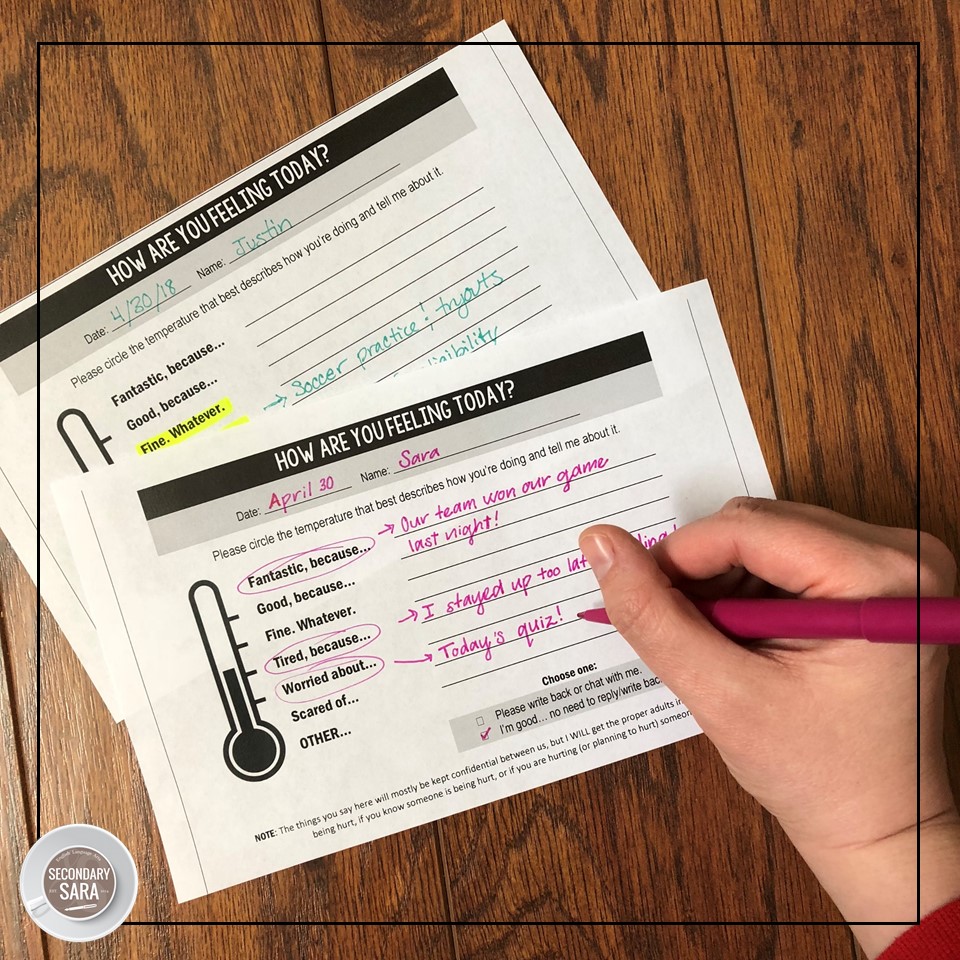 HOW ARE YOU FEELING TODAY?
Date: 4/30/18 Name: Justin
Please circle the temperature that best describes how you're doing and tell me about it.
Fantastic, because...
Good, because...
Fine. Whatever.
Soccer practice / tryouts
HOW ARE YOU FEELING TODAY?
Date: April 30 Name: Sara
Please circle the temperature that best describes how you're doing and tell me about it.
Fantastic, because...
Our team won our game
last night!
Good, because...
Fine. Whatever.
Tired, because...
I stayed up too
Worried about...
Today's quiz!
Scared of...
OTHER...
Choose one:
Please write back or chat with me.
I'm good... no need to reply/write
NOTE: The things you say here will mostly be kept confidential between us, but I WILL get the proper adults
being hurt, if you know someone is being hurt, or if you are hurting (or planning to hurt)
SECONDARY
SARA